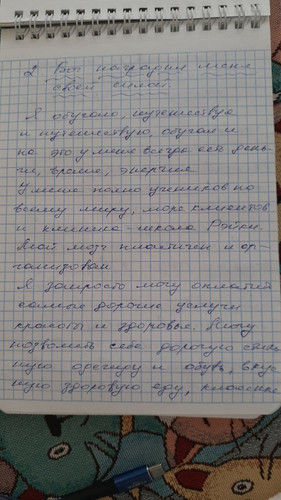 2. Бог наградил меня
своей силой.
Я обучаю, путешествуя
и путешествую, обучая и
на это у меня всегда есть день-
ги, время, энергия.
У меня полно учеников по
всему миру, море клиентов
и клиника-школа Рэйки.
Мой мозг пластичен и ор-
ганизован.
Я запросто могу оплатить
самые дорогие услуги
красоты и здоровья. Могу
позволить себе дорогую
одежду и обувь, вкус-
ную здоровую еду, классные